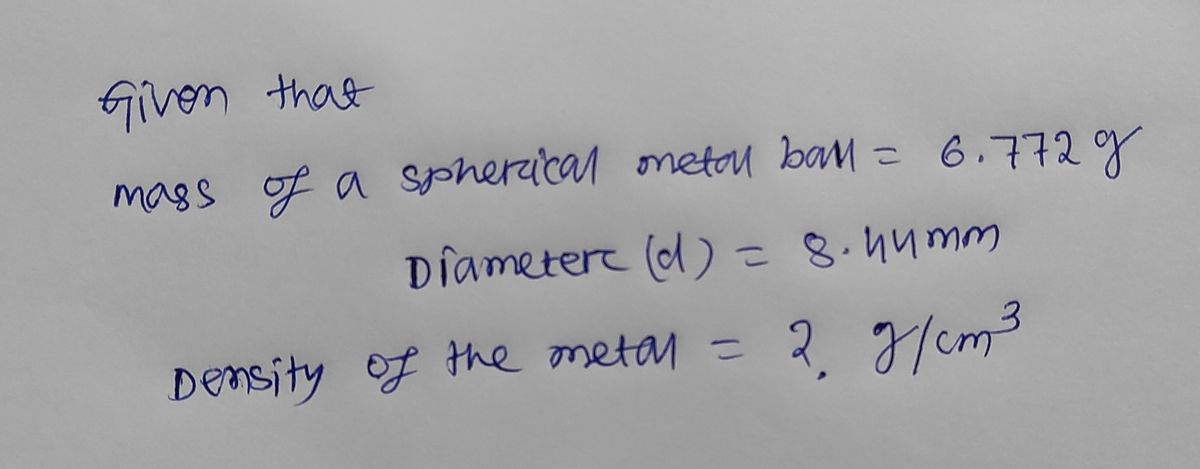 Given that
mass of a spherical metal ball = 6.772 g
Diameter (d) = 8.44 mm
Density of the metal = ? g/cm³